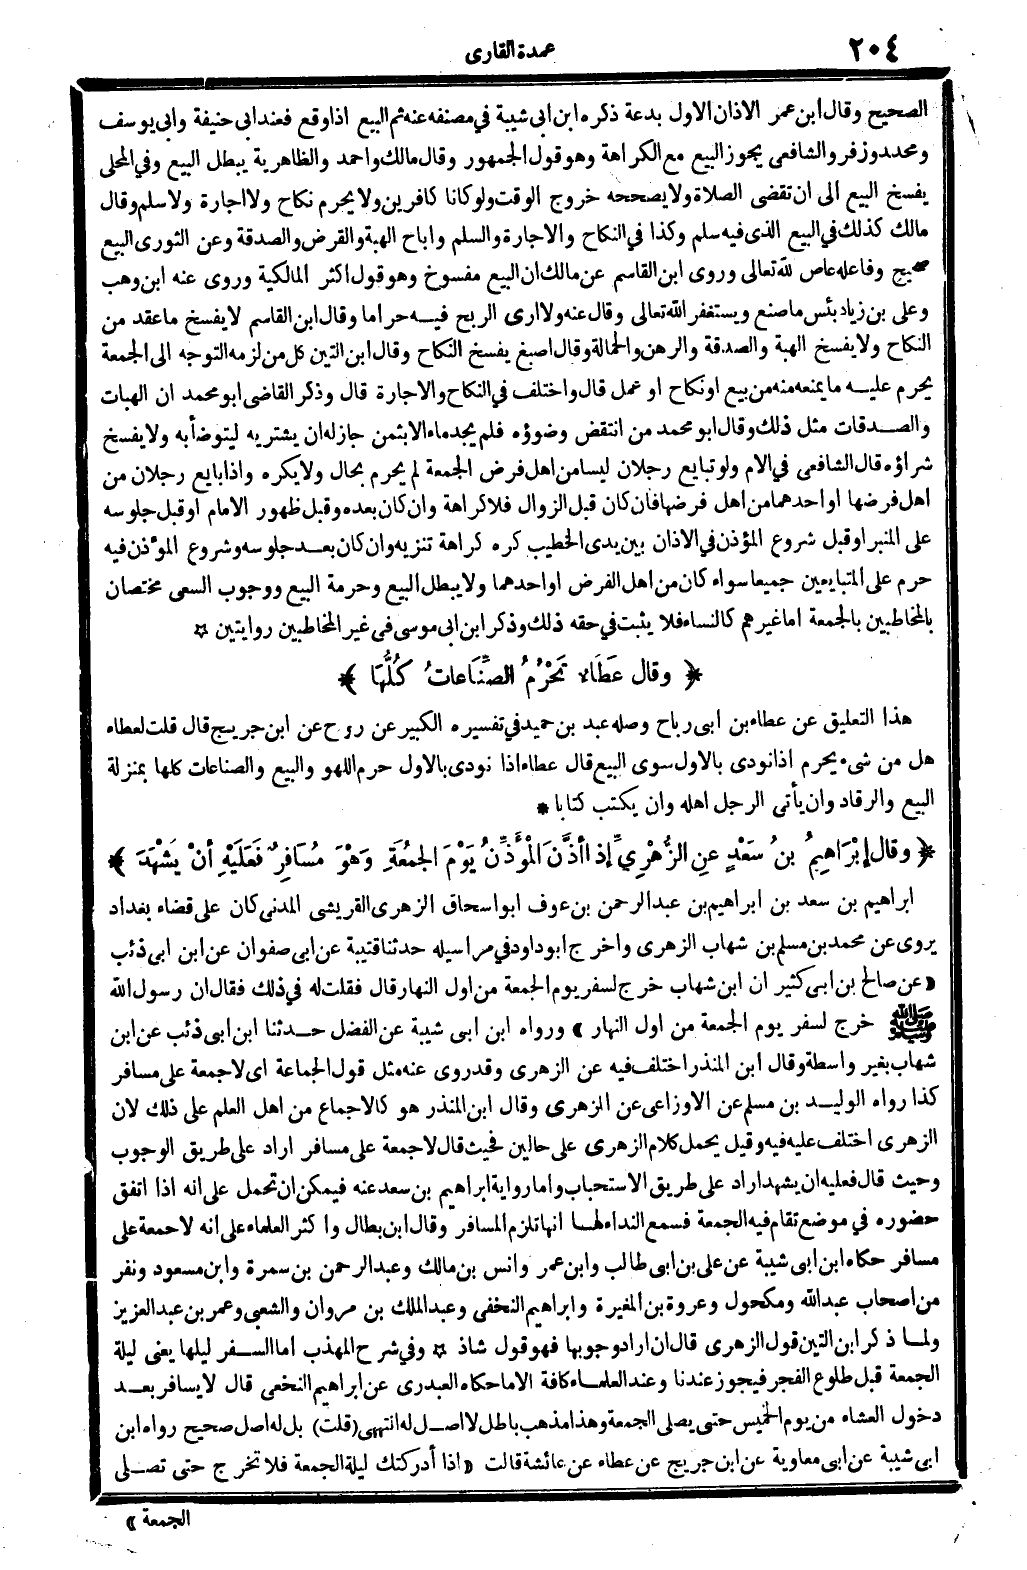 ٢٠٤
عمدة القارى
الصحيح وقال ابن عمر الاذان الاول بدعة ذكره ابن ابى شيبة في مصنفه عنه ثم البيع اذا وقع فعند ابى حنيفة وابى يوسف
ومحمد وزفر والشافعى يجوز البيع مع الكراهة وهو قول الجمهور وقال مالك واحمد والظاهرية يبطل البيع وفي المحلى
يفسخ البيع الى ان تقضى الصلاة ولا يصححه خروج الوقت ولو كانا كافرين ولا يحرم نكاح ولا اجارة ولا سلم وقال
مالك كذلك في البيع الذى فيه سلم وكذا في النكاح والاجارة والسلم واباح الهبة والقرض والصدقة وعن الثورى البيع
صحيح وفاعله عاص لله تعالى وروى ابن القاسم عن مالك ان البيع مفسوخ وهو قول اكثر المالكية وروى عنه ابن وهب
وعلى بن زياد بئس ما صنع ويستغفر الله تعالى وقال عنه ولا ارى الربح فيه حراما وقال ابن القاسم لا يفسخ ما عقد من
النكاح ولا يفسخ الهبة والصدقة والرهن والحمالة وقال اصبغ يفسخ النكاح وقال ابن التين كل من لزمه التوجه الى الجمعة
يحرم عليه ما يمنعه منه من بيع او نكاح او عمل قال واختلف في النكاح والاجارة قال وذكر القاضى ابو محمد ان الهبات
والصدقات مثل ذلك وقال ابو محمد من انتقض وضوؤه فلم يجد ماء الا بثمن جاز له ان يشتريه ليتوضأ به ولا يفسخ
شراؤه قال الشافعى في الام ولو تبايع رجلان ليسا من اهل فرض الجمعة لم يحرم بحال ولا يكره واذا بايع رجلان من
اهل فرضها او احدهما من اهل فرضها فان كان قبل الزوال فلا كراهة وان كان بعده وقبل ظهور الامام او قبل جلوسه
على المنبر او قبل شروع المؤذن في الاذان بين يدى الخطيب كره كراهة تنزيه وان كان بعد جلوسه وشروع المؤذن فيه
حرم على المتبايعين جميعا سواء كان من اهل الفرض او احدهما ولا يبطل البيع وحرمة البيع ووجوب السعى مختصان
بالمخاطبين بالجمعة اما غيرهم كالنساء فلا يثبت في حقه ذلك وذكر ابن ابى موسى فى غير المخاطبين روايتين ☆
﴿ وقال عَطَاء تَحْرُمُ الصِّنَاعاتُ كُلُّهَا ﴾
هذا التعليق عن عطاء بن ابى رباح وصله عبد بن حميد في تفسيره الكبير عن روح عن ابن جريج قال قلت لعطاء
هل من شىء يحرم اذا نودى بالاول سوى البيع قال عطاء اذا نودى بالاول حرم اللهو والبيع والصناعات كلها بمنزلة
البيع والرقاد وان يأتى الرجل اهله وان يكتب كتابا *
﴿ وقال إبْرَاهِيمُ بنُ سَعْدٍ عنِ الزُّهْرِيِّ إذا أذَّنَ المُؤَذِّنُ يَوْمَ الجمُعَةِ وَهْوَ مُسَافِرٌ فَعَلَيْهِ أنْ يَشْهَدَ ﴾
ابراهيم بن سعد بن ابراهيم بن عبد الرحمن بن عوف ابو اسحاق الزهرى القريشى المدنى كان على قضاء بغداد
يروى عن محمد بن مسلم بن شهاب الزهرى واخرج ابو داود في مراسيله حدثنا قتيبة عن ابى صفوان عن ابن ابى ذئب
« عن صالح بن ابى كثير ان ابن شهاب خرج لسفر يوم الجمعة من اول النهار قال فقلت له في ذلك فقال ان رسول الله
ﷺ خرج لسفر يوم الجمعة من اول النهار » ورواه ابن ابى شيبة عن الفضل حدثنا ابن ابى ذئب عن ابن
شهاب بغير واسطة وقال ابن المنذر اختلف فيه عن الزهرى وقد روى عنه مثل قول الجماعة اى لا جمعة على مسافر
كذا رواه الوليد بن مسلم عن الاوزاعى عن الزهرى وقال ابن المنذر هو كالاجماع من اهل العلم على ذلك لان
الزهرى اختلف عليه فيه وقيل يحمل كلام الزهرى على حالين فحيث قال لا جمعة على مسافر اراد على طريق الوجوب
وحيث قال فعليه ان يشهد اراد على طريق الاستحباب واما رواية ابراهيم بن سعد عنه فيمكن ان تحمل على انه اذا اتفق
حضوره في موضع تقام فيه الجمعة فسمع النداء لها انها تلزم المسافر وقال ابن بطال واكثر العلماء على انه لا جمعة على
مسافر حكاه ابن ابى شيبة عن على بن ابى طالب وابن عمر وانس بن مالك وعبد الرحمن بن سمرة وابن مسعود ونفر
من اصحاب عبد الله ومكحول وعروة بن المغيرة وابراهيم النخفى وعبد الملك بن مروان والشعبى وعمر بن عبد العزيز
ولما ذكر ابن التين قول الزهرى قال ان اراد وجوبها فهو قول شاذ ☆ وفي شرح المهذب اما السفر ليلها يعنى ليلة
الجمعة قبل طلوع الفجر فيجوز عندنا وعند العلماء كافة الا ما حكاه العبدرى عن ابراهيم النخعى قال لا يسافر بعد
دخول العشاء من يوم الخميس حتى يصلى الجمعة وهذا مذهب باطل لا اصل له انتهى (قلت) بل له اصل صحيح رواه ابن
ابى شيبة عن ابى معاوية عن ابن جريج عن عطاء عن عائشة قالت « اذا أدركتك ليلة الجمعة فلا تخرج حتى تصلى
الجمعة »